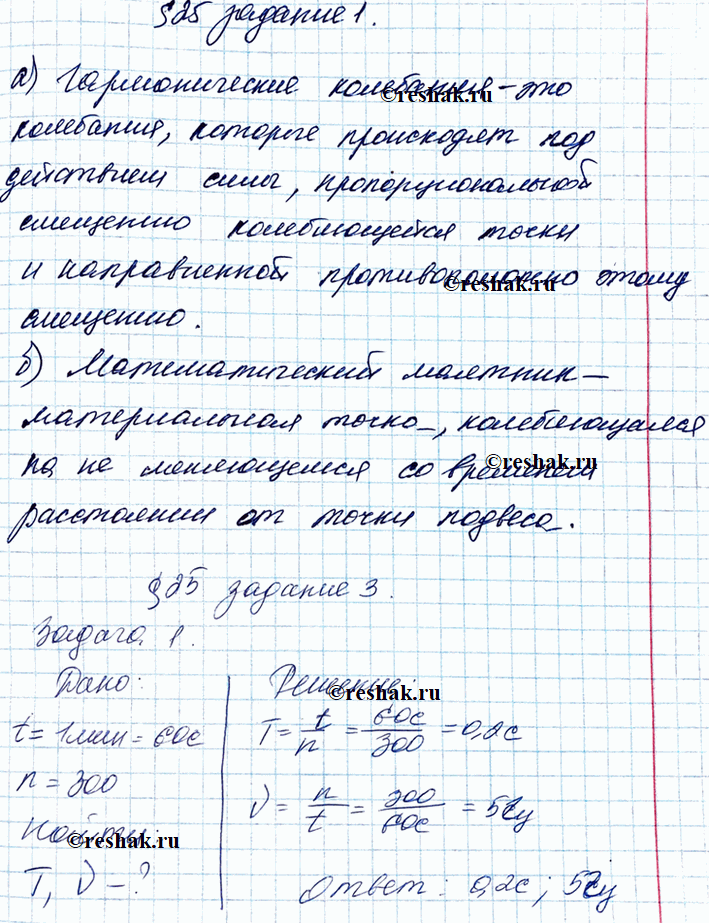 §25 задание 1.
а) Гармонические колебания - это
колебания, которые происходят под
действием силы, пропорциональной
смещению колеблющейся точки
и направленной противоположно этому
смещению.
б) Математический маятник —
материальная точка, колеблющаяся
на не меняющемся со временем
расстоянии от точки подвеса.
§25 задание 3.
Задача 1.
Дано:
t = 1 мин = 60с
n = 300
Найти:
T, ν - ?
Решение:
T = t/n = 60с/300 = 0,2с
ν = n/t = 300/60с = 5Гц
Ответ: 0,2с; 5Гц
©reshak.ru
©reshak.ru
©reshak.ru
©reshak.ru
©reshak.ru